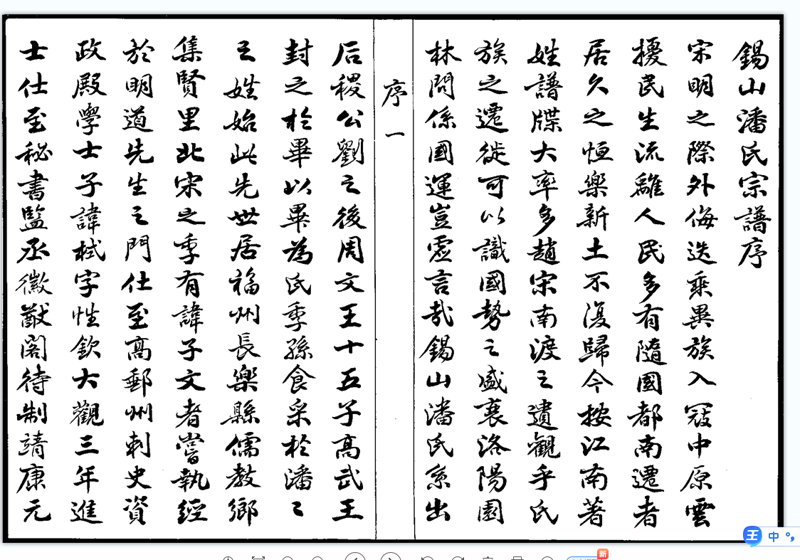 錫山潘氏宗譜序
宋明之際外侮迭乘異族入寇中原雲
擾民生流離人民多有隨國都南遷者
居久之恒樂新土不復歸今按江南著
姓譜牒大率多趙宋南渡之遺觀乎氏
族之遷徙可以識國勢之盛衰洛陽園
林問係國運豈虛言哉錫山潘氏系出
序 一
后稷公劉之後周文王十五子高武王
封之於畢以畢為氏季孫食采於潘之
之姓始此先世居福州長樂縣儒教鄉
集賢里北宋之季有諱子文者嘗執經
於明道先生之門仕至高郵州刺史資
政殿學士子諱栻字性欽大觀三年進
士仕至秘書監丞徽猷閣待制靖康元
王 中 °,
新